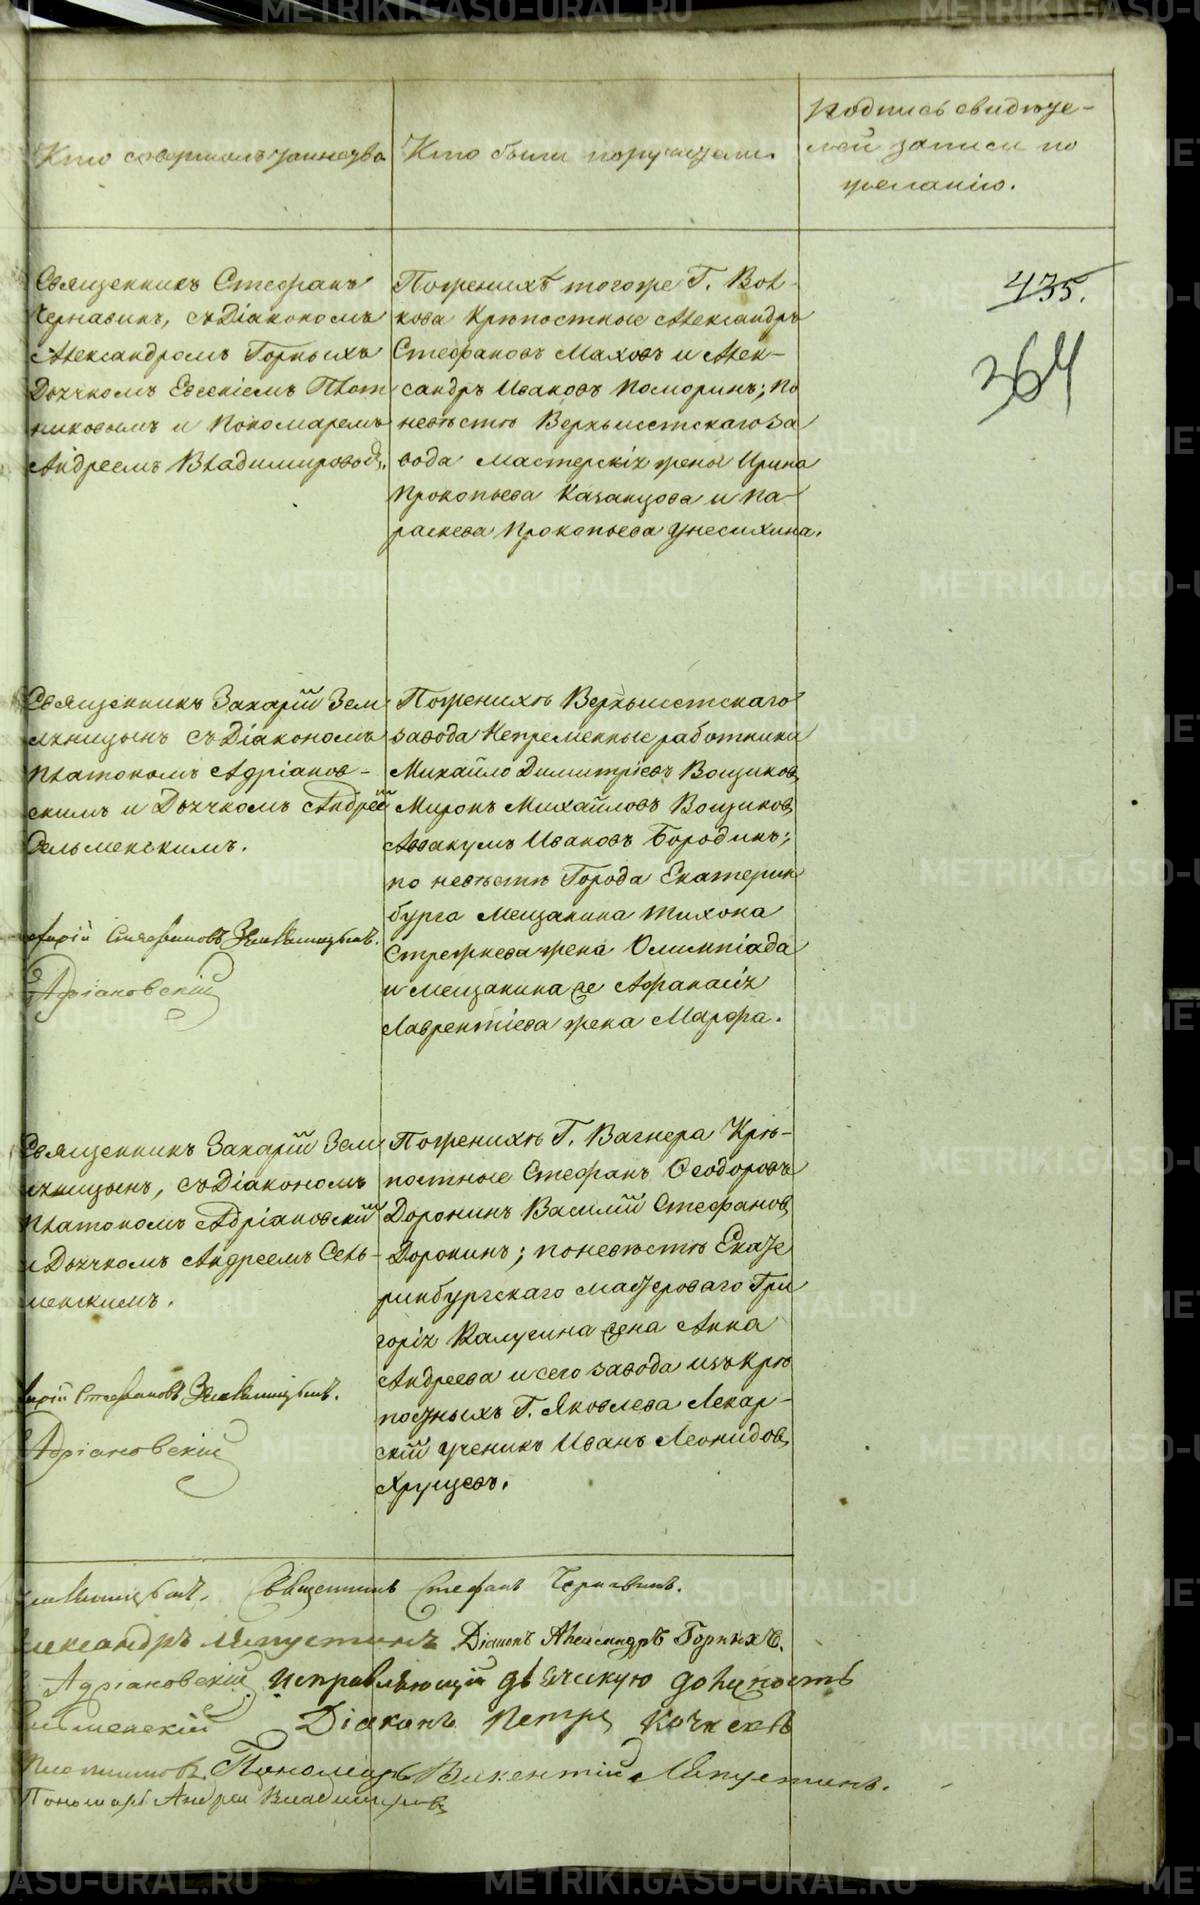 Кто совершалъ таинства
Кто были поручители.
Подпись свидѣте-
лей записи по
желанію.
435.
364
Священникъ Стефанъ
Чернавинъ, съ Діакономъ
Александромъ Горныхъ
Дьячкомъ Евгеніемъ Плот
никовымъ и Пономаремъ
Андреемъ Владимировымъ.
По женихѣ тогоже Г. Вол-
кова Крѣпостные Александръ
Стефановъ Маховъ и Алек-
сандръ Ивановъ Поморинъ; По
невѣстѣ Верхъисетскаго за
вода мастерскихъ жены Ирина
Прокопьева Казанцова и Па-
раскева Прокопьева
Священникъ Захарій Зем
ляницынъ съ Діакономъ
Платономъ Адріанов-
скимъ и Дьячкомъ Андрей
Сельменскимъ.
Стефановъ Земляницынъ.
Адріановскій
По женихѣ Верхъисетскаго
завода Непременные работники
Михайло Димитріевъ Вощиковъ
Миронъ Михайловъ Вощиковъ
Аввакумъ Ивановъ Бородинъ;
по невѣстѣ Города Екатерин
бурга Мещанина Тихона
Стрежнева жена Олимпіада
и мещанина же Афанасія
Лаврентіева жена Марфа.
Священникъ Захарій Зем
ляницынъ, съ Діакономъ
Платономъ Адріановскій
и Дьячкомъ Андреемъ Сель-
менскимъ.
Стефановъ Земляницынъ.
Адріановскій
По женихѣ Г. Вагнера Крѣ-
постные Стефанъ Ѳеодоровъ
Доронинъ Василій Стефановъ
Доронинъ; по невѣстѣ Екате
ринбургскаго мастероваго Гри
горія Калугина жена Анна
Андреева и сего завода изъ Крѣ
постныхъ Г. Яковлева Лекар-
скій ученикъ Иванъ Леонидовъ
Хрущевъ.
Земляницынъ. Священникъ Стефанъ Чернавинъ.
Александръ Ляпустинъ Діаконъ Александръ Горныхъ.
Адріановскій Исправляющій дьяческую должность
Сельменскій Діаконъ Петръ Кочневъ
Плотниковъ. Пономарь Викентій Ляпустинъ.
Пономарь Андрей Владимировъ
METRIKI.GASO-URAL.RU